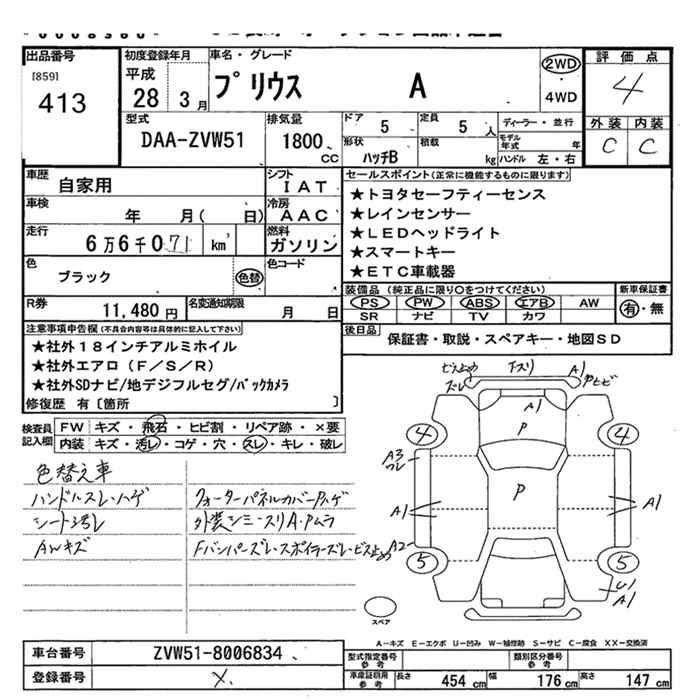 出品番号
[859]
413
初度登録年月
平成
28 3月
車名・グレード
プリウス A
2WD
・
4WD
評価点
4
外装 内装
C C
型式
DAA-ZVW51
排気量
1800 cc
ドア 5
定員 5人
ディーラー・並行
形状 ハッチB
積載 kg
モデル年式 年
ハンドル 左・右
車歴 自家用
シフト IAT
車検 年 月( 日)
冷房 AAC
走行 6万6千071 km
燃料 ガソリン
色 ブラック 色替
色コード
R券 11,480円
名変通知期限 月 日
セールスポイント(正常に機能するものに限ります)
★トヨタセーフティーセンス
★レインセンサー
★LEDヘッドライト
★スマートキー
★ETC車載器
装備品(純正品に限り○をつけてください)
新車保証書
PS PW ABS エアB AW
SR ナビ TV カワ
有・無
後日品 保証書・取説・スペアキー・地図SD
注意事項申告欄(不具合内容等は具体的に記入して下さい)
★社外18インチアルミホイル
★社外エアロ(F/S/R)
★社外SDナビ/地デジフルセグ/バックカメラ
修復歴 有〔箇所 〕
検査員記入欄
FW キズ・飛石・ヒビ割・リペア跡・×要
内装 キズ・汚レ・コゲ・穴・スレ・キレ・破レ
色替え車
ハンドルスレ・ハゲ
シート汚レ
AWキズ
クォーターパネルカバーハゲ
外装シミ・スリA・Pムラ
Fバンパーズレ・スポイラーズレ・ビス止め
ビス止め
ズレ
A1
A1
P
P
4
4
A3
A1
A1
A2
5
5
U1
A1
スペア
A-キズ E-エクボ U-凹み W-補修跡 S-サビ C-腐食 XX-交換済
車台番号 ZVW51-8006834
登録番号 ×
型式指定番号 参考
類別区分番号 参考
車庫証明用 参考
長さ 454 cm
幅 176 cm
高さ 147 cm